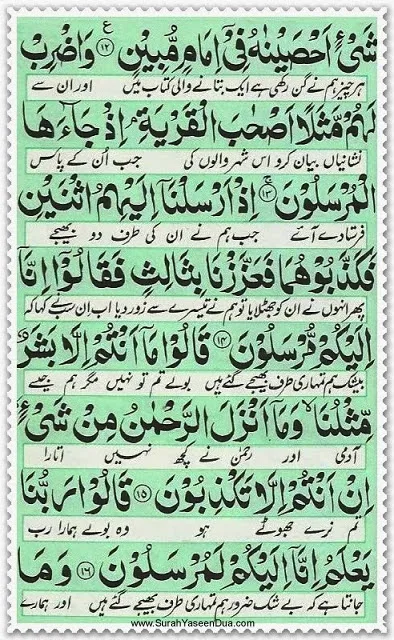 شَیْءٍ اَحْصَیْنٰهُ فِیْۤ اِمَامٍ مُّبِیْنٍ ۝۱۲ ع وَاضْرِبْ
ہر چیز ہم نے گن رکھی ہے ایک بتانے والی کتاب میں اور ان سے
لَهُمْ مَّثَلًا اَصْحٰبَ الْقَرْیَةِ ۘ اِذْ جَآءَهَا
نشانیاں بیان کرو اس شہر والوں کی جب اُن کے پاس
الْمُرْسَلُوْنَ ۝۱۳ ج اِذْ اَرْسَلْنَاۤ اِلَیْهِمُ اثْنَیْنِ
فرستادے آئے جب ہم نے ان کی طرف دو بھیجے
فَكَذَّبُوْهُمَا فَعَزَّزْنَا بِثَالِثٍ فَقَالُوْۤا اِنَّاۤ
پھر انہوں نے ان کو جھٹلایا تو ہم نے تیسرے سے زور دیا اب ان سب نے کہا کہ
اِلَیْكُمْ مُّرْسَلُوْنَ ۝۱۴ قَالُوْا مَاۤ اَنْتُمْ اِلَّا بَشَرٌ
بیشک ہم تمہاری طرف بھیجے گئے ہیں بولے تم تو نہیں مگر ہم جیسے
مِّثْلُنَا ۙ وَمَاۤ اَنْزَلَ الرَّحْمٰنُ مِنْ شَیْءٍ ۙ
آدمی اور رحمٰن نے کچھ نہیں اتارا
اِنْ اَنْتُمْ اِلَّا تَكْذِبُوْنَ ۝۱۵ قَالُوْا رَبُّنَا
تم نرے جھوٹے ہو وہ بولے ہمارا رب
یَعْلَمُ اِنَّاۤ اِلَیْكُمْ لَمُرْسَلُوْنَ ۝۱۶ وَمَا
جانتا ہے کہ بے شک ضرور ہم تمہاری طرف بھیجے گئے ہیں اور ہمارے
www.SurahYaseenDua.com